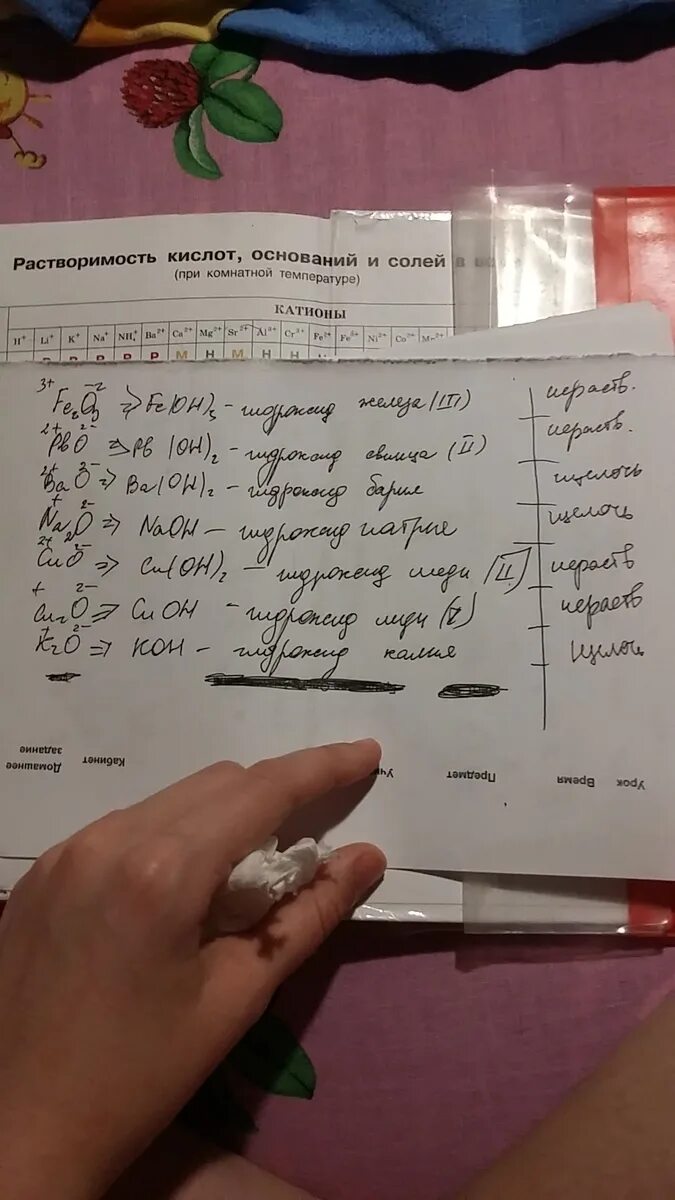 Растворимость кислот, оснований и солей в
(при комнатной температуре)
КАТИОНЫ
H⁺ Li⁺ K⁺ Na⁺ NH₄⁺ Ba²⁺ Ca²⁺ Mg²⁺ Sr²⁺ Al³⁺ Cr³⁺ Fe²⁺ Fe³⁺ Ni²⁺ Co²⁺ Mn²⁺
Р Р Р Р М Н М Н Н Н
3+ -2 Fe₂O₃ => Fe(OH)₃ - гидроксид железа (III) нераств.
2+ 2- PbO => Pb(OH)₂ - гидроксид свинца (II) нераств.
2+ 2- BaO => Ba(OH)₂ - гидроксид бария щелочь
+ 2- Na₂O => NaOH - гидроксид натрия щелочь
2+ 2- CuO => Cu(OH)₂ - гидроксид меди (II) нераств
+ 2- Cu₂O => CuOH - гидроксид меди нераств
+ 2- K₂O => KOH - гидроксид калия щелочь
Урок Время Предмет Кабинет Домашнее
задание